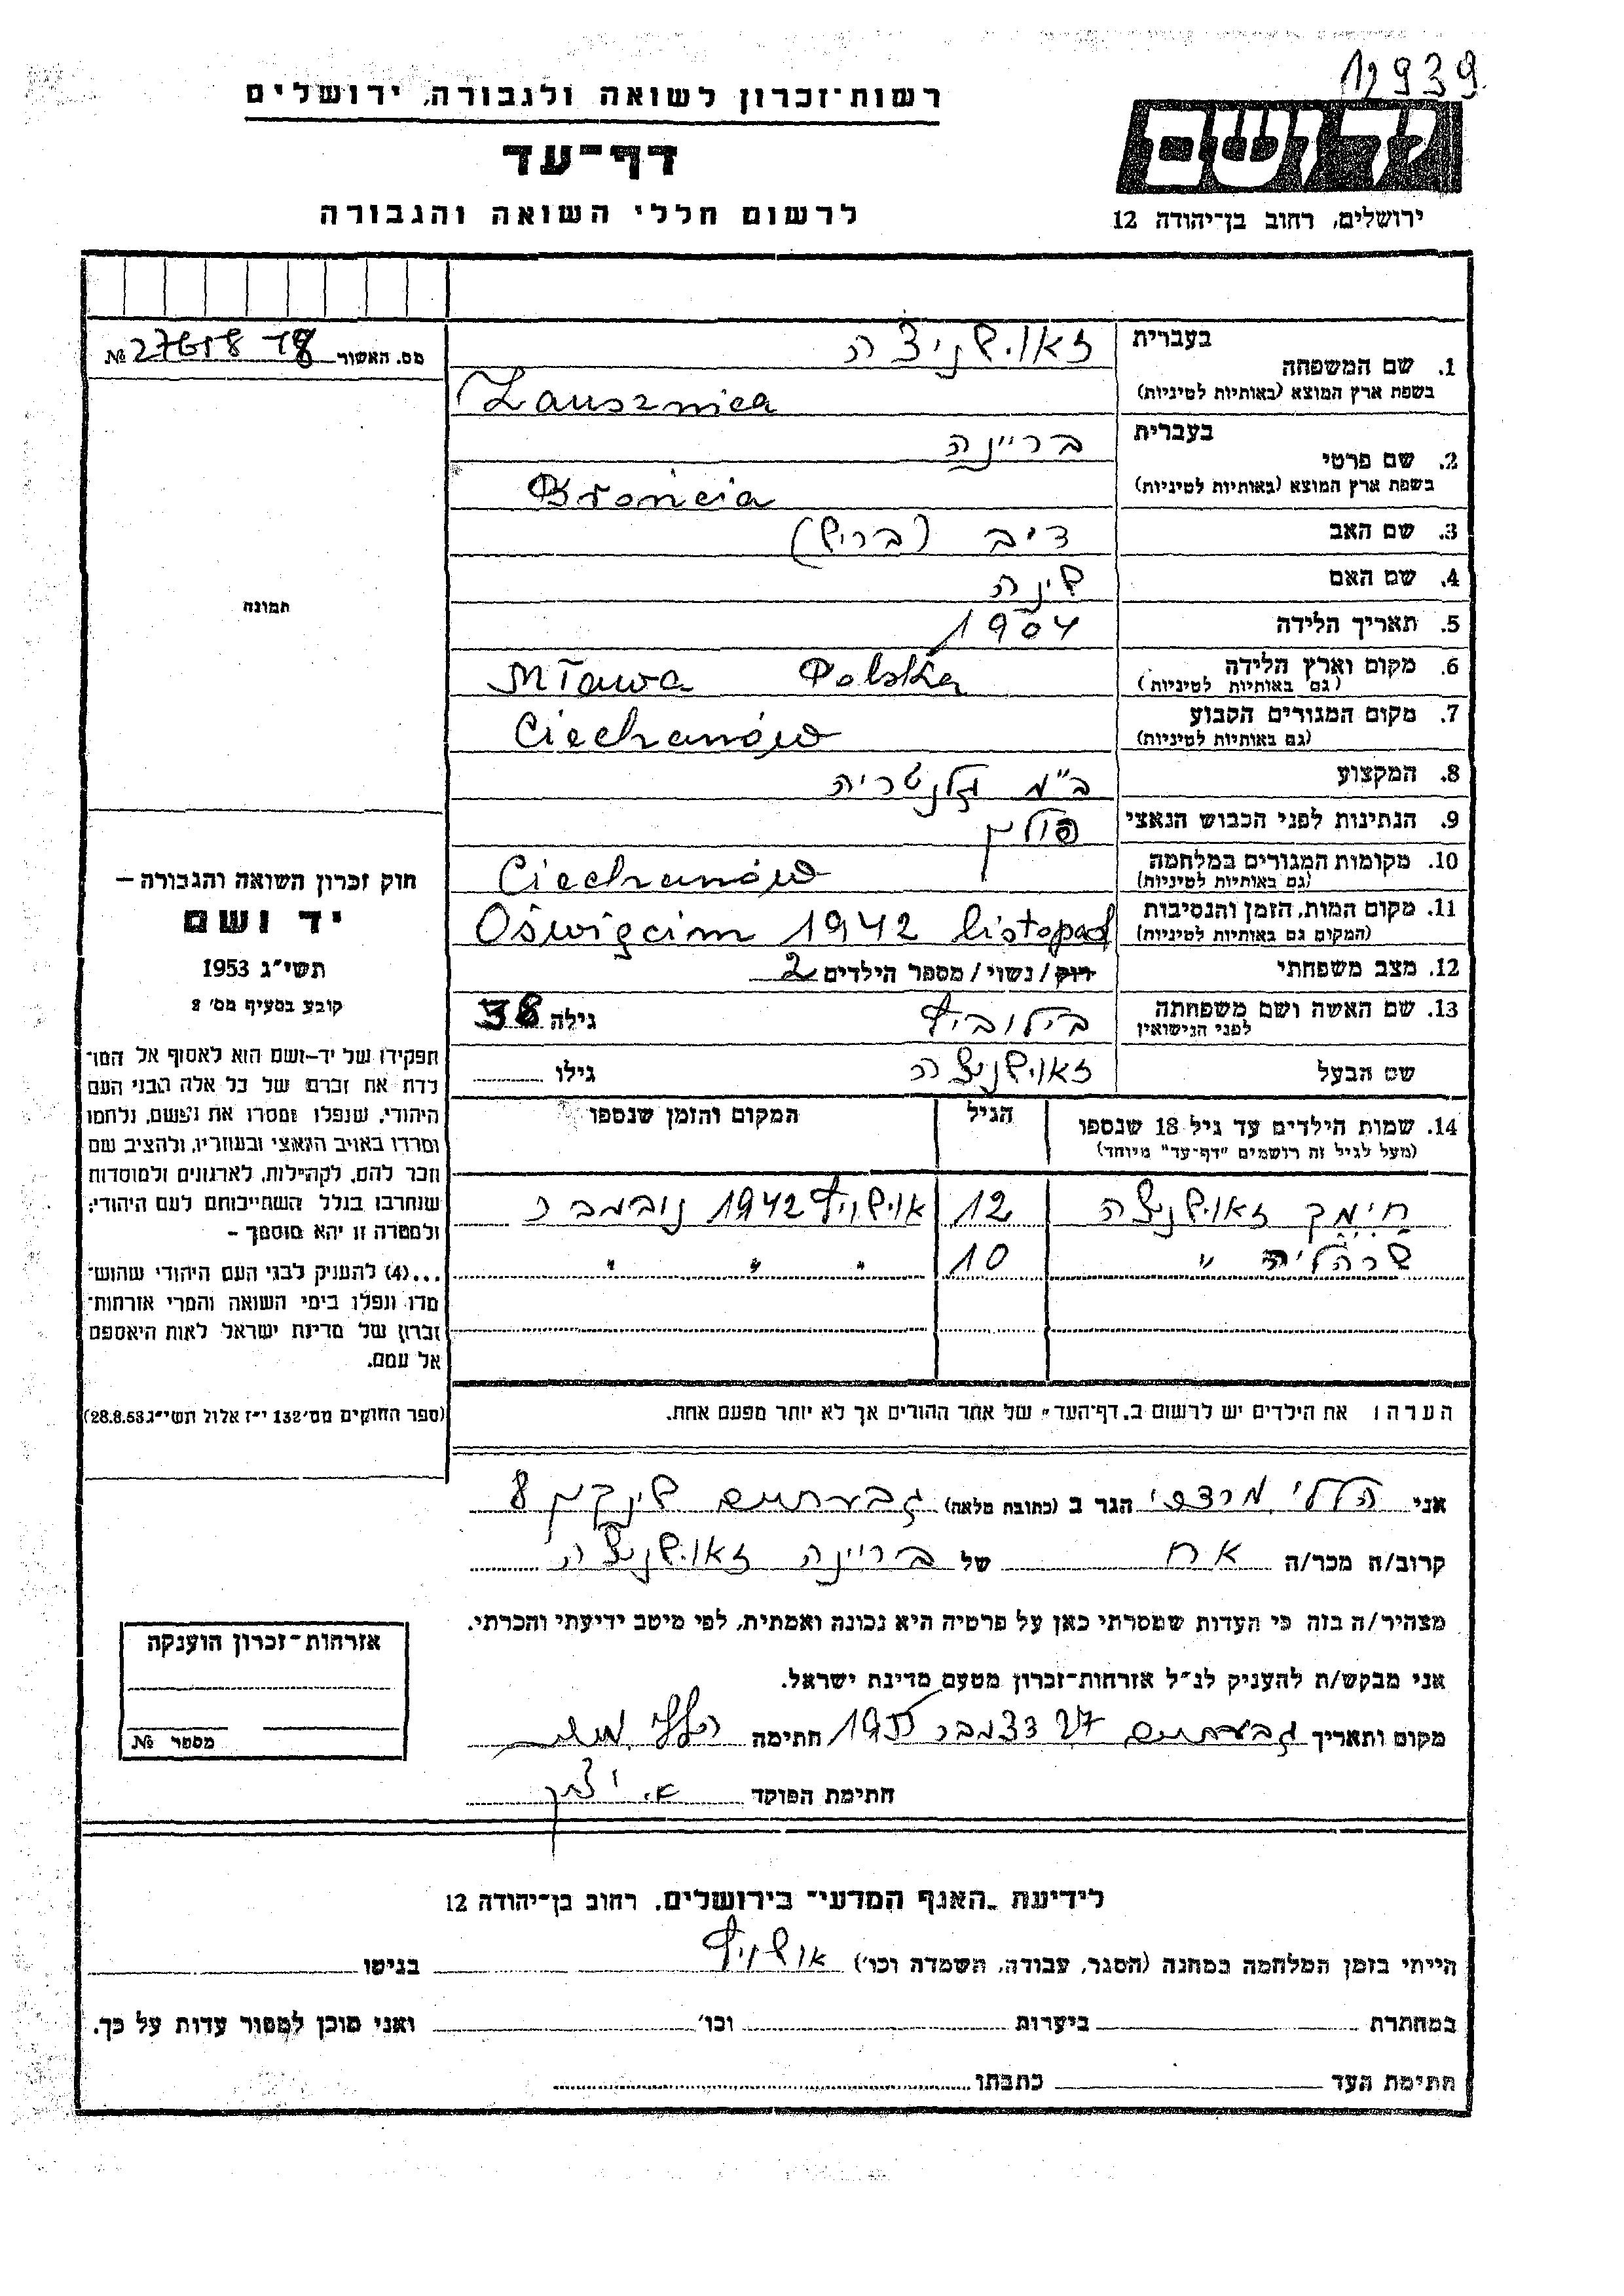 12939
רשות־זכרון לשואה ולגבורה, ירושלים
דף־עד
לרשום חללי השואה והגבורה
יד ושם
ירושלים, רחוב בן־יהודה 12
מס. האשור №
בעברית
1. שם המשפחה זאושניצה
בשפת ארץ המוצא (באותיות לטיניות) Zausznica
בעברית
2. שם פרטי בריינה
בשפת ארץ המוצא (באותיות לטיניות) Broncia
3. שם האב
4. שם האם
5. תאריך הלידה 1904
6. מקום וארץ הלידה Mława Polska
(גם באותיות לטיניות)
7. מקום המגורים הקבוע Ciechanów
(גם באותיות לטיניות)
8. המקצוע בי"מ גלנטריה
9. הנתינות לפני הכבוש הנאצי פולין
10. מקומות המגורים במלחמה Ciechanów
(גם באותיות לטיניות)
11. מקום המות, הזמן והנסיבות Oświęcim 1942 listopad
(המקום גם באותיות לטיניות)
12. מצב משפחתי רוק/נשוי/מספר הילדים 2
13. שם האשה ושם משפחתה
לפני הנישואין גילה 38
שם הבעל זאושניצה גילו
14. שמות הילדים עד גיל 18 שנספו הגיל המקום והזמן שנספו
(מעל לגיל זה רושמים "דף־עד" מיוחד)
זאושניצה 12 1942 נובמבר
" 10 " " "
הערה: את הילדים יש לרשום ב„דף־העד" של אחד ההורים אך לא יותר מפעם אחת.
תמונה
חוק זכרון השואה והגבורה –
יד ושם
תשי״ג 1953
קובע בסעיף מס׳ 2
תפקידו של יד־ושם הוא לאסוף אל המו־
לדת את זכרם של כל אלה מבני העם
היהודי, שנפלו ומסרו את נפשם, נלחמו
ומרדו באויב הנאצי ובעוזריו, ולהציב שם
וזכר להם, לקהילות, לארגונים ולמוסדות
שנחרבו בגלל השתייכותם לעם היהודי;
ולמטרה זו יהא מוסמך –
...(4) להעניק לבני העם היהודי שהוש־
מדו ונפלו בימי השואה והמרי אזרחות־
זכרון של מדינת ישראל לאות היאספם
אל עמם.
(ספר החוקים מס׳ 132 י״ז אלול תשי״ג 28.8.53)
אני הללי מרדכי הגר ב (כתובת מלאה) גבעתיים שינקין 8
קרוב/ה מכר/ה אח של בריינה זאושניצה
מצהיר/ה בזה כי העדות שמסרתי כאן על פרטיה היא נכונה ואמתית, לפי מיטב ידיעתי והכרתי.
אני מבקש/ת להעניק לנ״ל אזרחות־זכרון מטעם מדינת ישראל.
מקום ותאריך גבעתיים 27 דצמבר 1955 חתימה
חתימת הפוקד
אזרחות־זכרון הוענקה
מספר №
לידיעת „האגף המדעי" בירושלים, רחוב בן־יהודה 12
הייתי בזמן המלחמה במחנה (הסגר, עבודה, השמדה וכו׳) אושוויץ בגיטו
במחתרת ביערות וכו׳ ואני מוכן למסור עדות על כך.
חתימת העד כתבתו